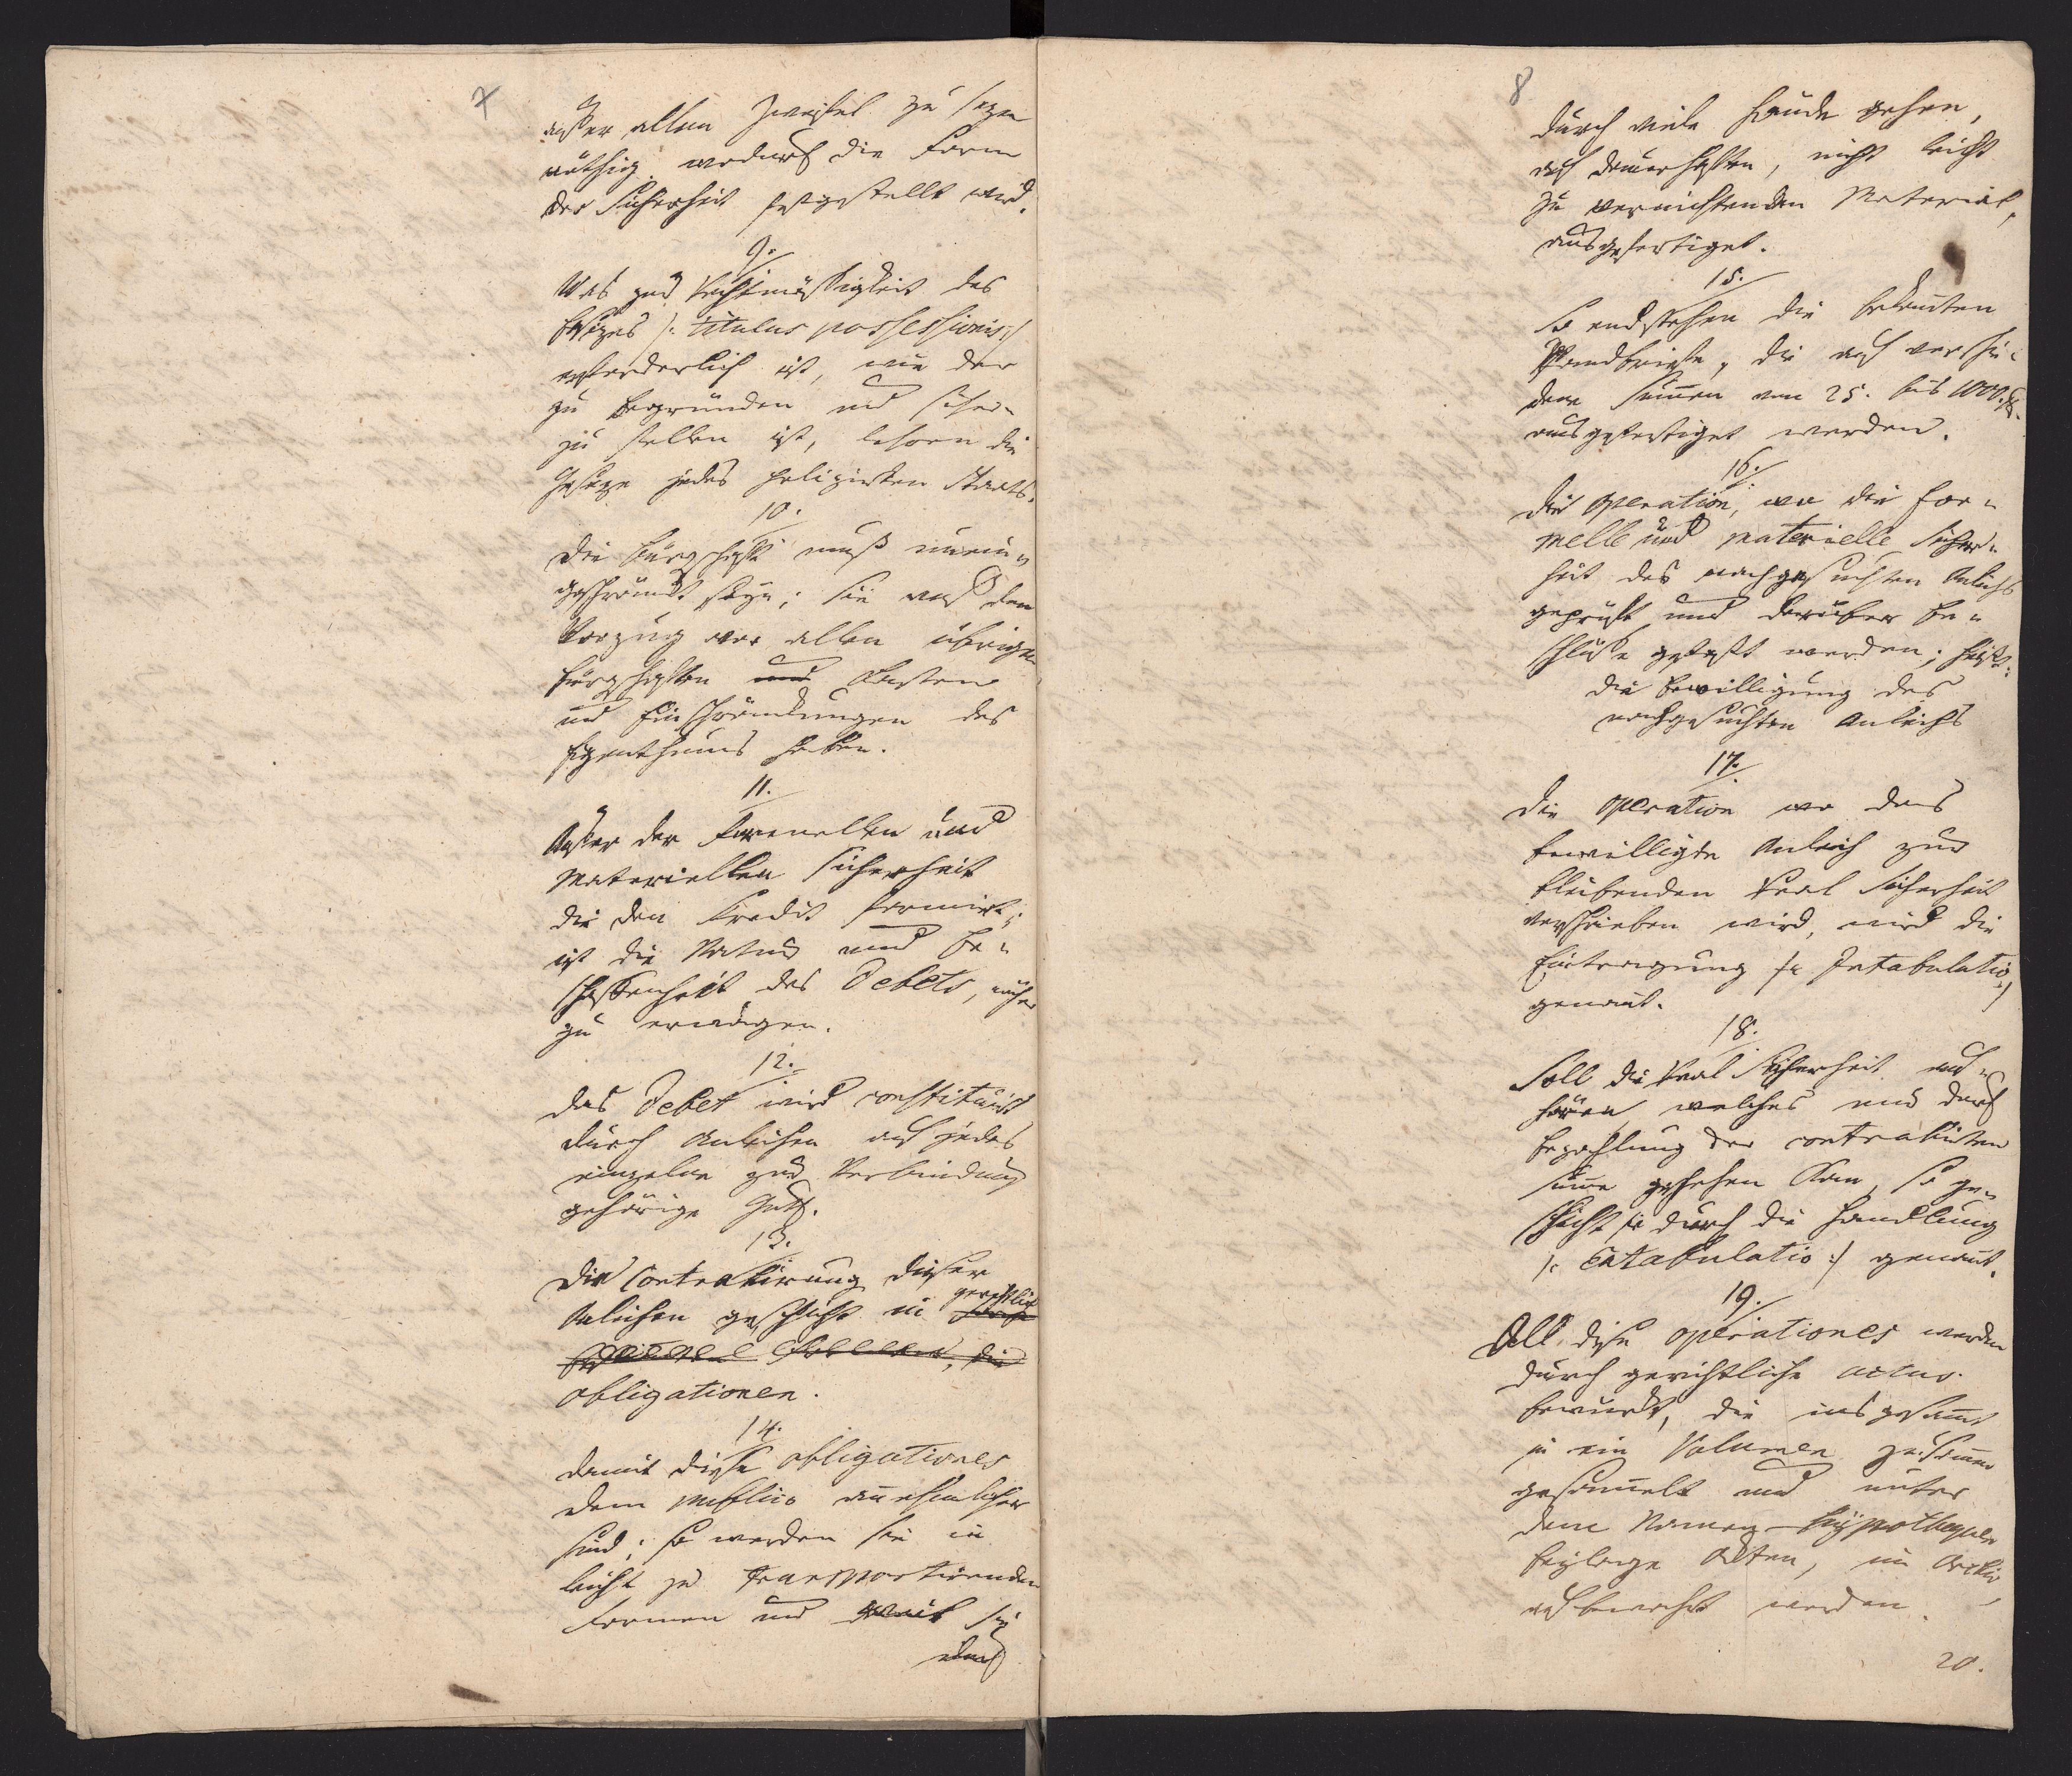 7
außer allen Zweifel zu sezen
nöthig, wodurch die Form
der Sicherheit festgestellt wird.
9.
Was zur Rechtmäßigkeit des
Besizes /: titulus possessionis :/
erforderlich ist, wie der
zu begründen und sicher
zu stellen ist, lehren die
Geseze jedes polizirten Staats.
10.
Die Bürgschaft muß unein-
geschränkt seyn; sie muß den
Vorzug vor allen übrigen
Bürgschaften und Lasten
und Einschränkungen des
Eigenthums haben.
11.
Außer der Formellen und
Materiellen Sicherheit
die den Credit formirt,
ist die Natur und Be-
schaffenheit des Debets, näher
zu erwägen.
12.
Das Debet wird constituirt
durch Anleihen auf jedes
einzelne zur Verbindung
gehörige Guth.
13.
Die Contrahirung dieser
Anleihen geschieht in gerichtlich
die
obligationen.
14.
Damit diese obligationes
dem publico annehmlicher
sind; so werden sie in
leicht zu transportirenden
Formen und weil sie
durch
8
durch viele Hände gehen,
auf dauerhaften, nicht leicht
zu vernichtenden Material,
ausgefertiget.
15.
So entstehen die bekannten
Pfandbriefe, die auf verschie-
dene Summen von 25. bis 1000.
ausgefertiget werden.
16.
Die Operation, wo die for-
melle und materielle Sicher-
heit des nachgesuchten Anleihs
geprüft und darüber Be-
schlüße gefaßt werden; heißt:
die Bewilligung des
nachgesuchten Anleihs
17.
Die Operation wo das
bewilligte Anleih zur
bleibenden Real Sicherheit
verschrieben wird, wird die
Eintragung /: Intabulatio :/
genannt.
18.
Soll die Real Sicherheit auf-
hören welches nur durch
Bezahlung der contrahirten
Summe geschehen kan, so ge-
schieht sie durch die Handlung
/: Extabulatio :/ genannt.
19.
All diese operationes werden
durch gerichtliche actus
bewürkt, die insgesammt
in ein Volumen zusammen
gesammelt und unter
dem Namen Hypothequen
beylage Akten, im Archiv
aufbewahrt werden.
20.